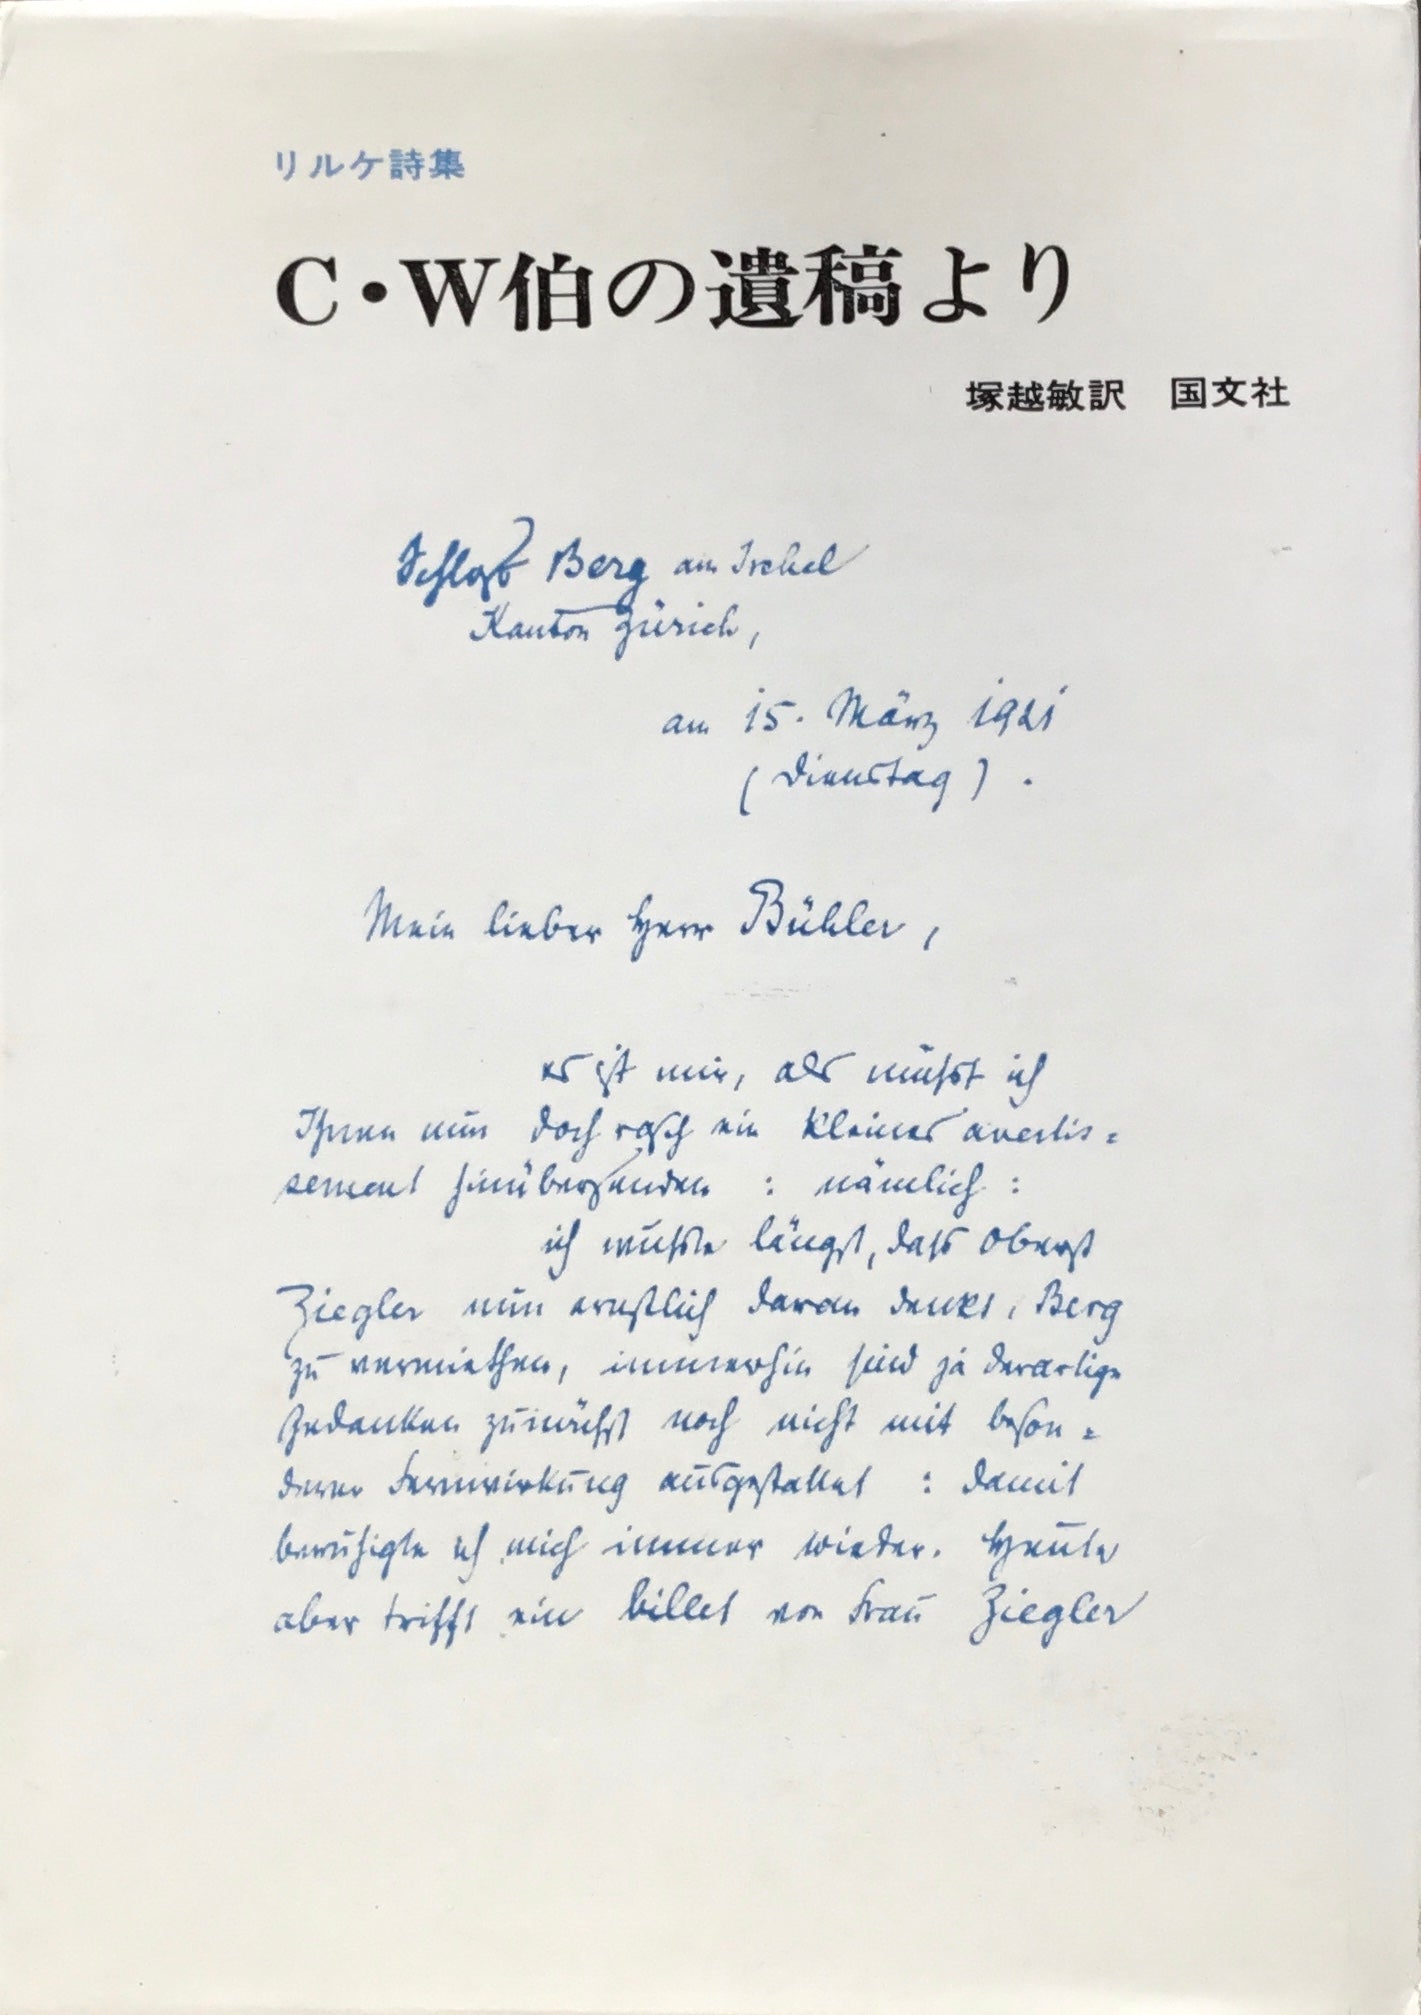 リルケ詩集
C・W伯の遺稿より
塚越敏訳　国文社
Schloß Berg am Irchel
Kanton Zürich,
am 15. März 1921
(Dienstag).
Mein lieber Herr Bühler,
es ist mir, als müßt ich
Ihnen nun doch rasch ein kleines avertis=
sement hinübersenden : nämlich :
ich wußte längst, daß Oberst
Ziegler nun ernstlich daran denkt, Berg
zu vermiethen, immerhin sind ja derartige
Gedanken zunächst noch nicht mit beson=
derer Fernwirkung ausgestattet : damit
beruhigte ich mich immer wieder. Heute
aber trifft ein billet von Frau Ziegler